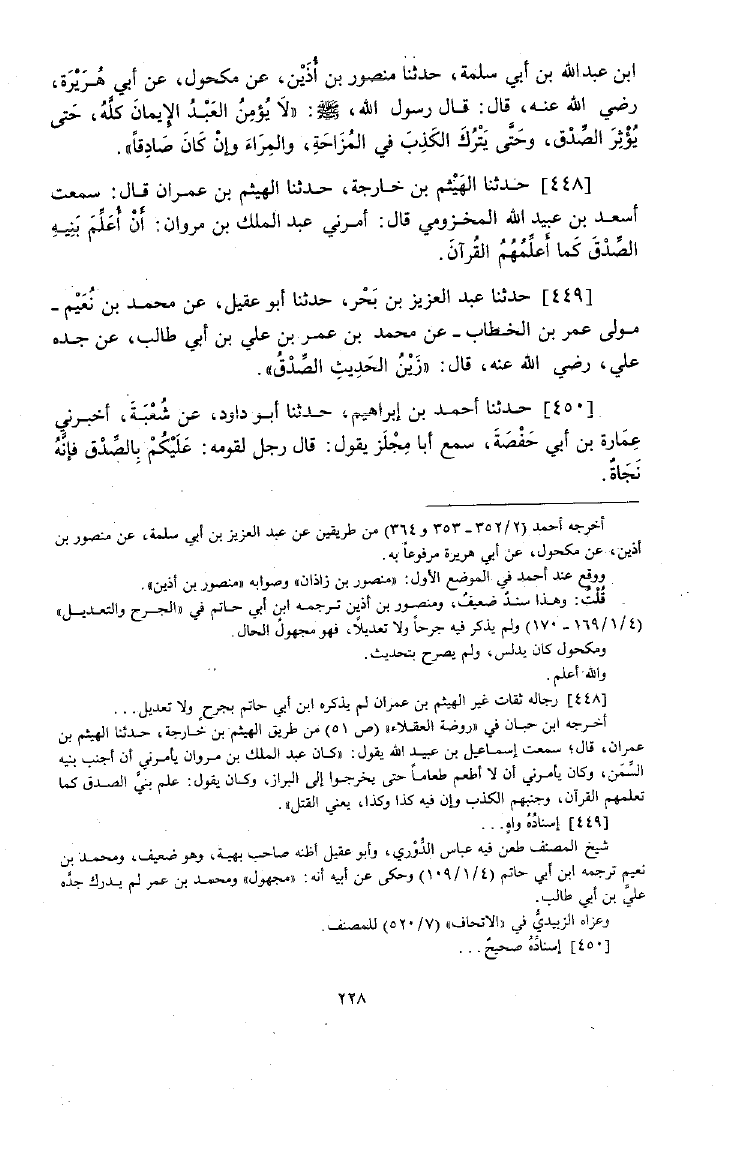 ابن عبدالله بن أبي سلمة، حدثنا منصور بن أُذَيْن، عن مكحول، عن أبي هُرَيْرَة،
رضي الله عنه، قال: قال رسول الله، ﷺ: «لَا يُؤمِنُ العَبْدُ الإِيمانَ كلَّهُ، حَتى
يُؤْثِرَ الصِّدْق، وحَتَّى يَتْرُكَ الكَذِبَ في المُزَاحَةِ، والمِرَاءَ وإِنْ كَانَ صَادِقاً».
[٤٤٨] حدثنا الهَيْثم بن خارجة، حدثنا الهيثم بن عمران قال: سمعت
أسعد بن عبيد الله المخزومي قال: أمرني عبد الملك بن مروان: أَنْ أُعَلِّمَ بَنِيهِ
الصِّدْقَ كَما أُعلِّمُهُمُ القُرآنَ.
[٤٤٩] حدثنا عبد العزيز بن بَحْر، حدثنا أبو عقيل، عن محمد بن نُعَيْم -
مولى عمر بن الخطاب - عن محمد بن عمر بن علي بن أبي طالب، عن جده
علي، رضي الله عنه، قال: «زَيْنُ الحَدِيثِ الصِّدْقُ».
[٤٥٠] حدثنا أحمد بن إبراهيم، حدثنا أبو داود، عن شُعْبَةَ، أخبرني
عِمَارة بن أبي حَفْصَةَ، سمع أبا مِجْلَز يقول: قال رجل لقومه: عَلَيْكُمْ بِالصِّدْق فإِنَّهُ
نَجَاةٌ.
أخرجه أحمد (٣٥٢/٢ - ٣٥٣ و ٣٦٤) من طريقين عن عبد العزيز بن أبي سلمة، عن منصور بن
أذين، عن مكحول، عن أبي هريرة مرفوعاً به.
ووقع عند أحمد في الموضع الأول: «منصور بن زاذان» وصوابه «منصور بن أذين».
قُلْتُ: وهذا سندٌ ضعيفٌ، ومنصور بن أذين ترجمه ابن أبي حاتم في «الجرح والتعديل»
(١٦٩/١/٤ - ١٧٠) ولم يذكر فيه جرحاً ولا تعديلًا، فهو مجهولُ الحال.
ومكحول كان يدلس، ولم يصرح بتحديث.
والله أعلم.
[٤٤٨] رجاله ثقات غير الهيثم بن عمران لم يذكره ابن أبي حاتم بجرحٍ ولا تعديل...
أخرجه ابن حبان في «روضة العقلاء» (ص ٥١) من طريق الهيثم بن خارجة، حدثنا الهيثم بن
عمران، قال؛ سمعت إسماعيل بن عبيد الله يقول: «كان عبد الملك بن مروان يأمرني أن أجنب بنيه
السَّمَن، وكان يأمرني أن لا أطعم طعاماً حتى يخرجوا إلى البراز، وكان يقول: علم بنيَّ الصدق كما
تعلمهم القرآن، وجنبهم الكذب وإن فيه كذا وكذا، يعني القتل».
[٤٤٩] إسنادُهُ واهٍ...
شيخ المصنف طعن فيه عباس الدُّوْري، وأبو عقيل أظنه صاحب بهية، وهو ضعيف، ومحمد بن
نعيم ترجمه ابن أبي حاتم (١٠٩/١/٤) وحكى عن أبيه أنه: «مجهول» ومحمد بن عمر لم يدرك جدَّه
عليَّ بن أبي طالب.
وعزاه الزبيديُّ في «الاتحاف» (٥٢٠/٧) للمصنف.
[٤٥٠] إسنادُهُ صحيحٌ...
٢٢٨